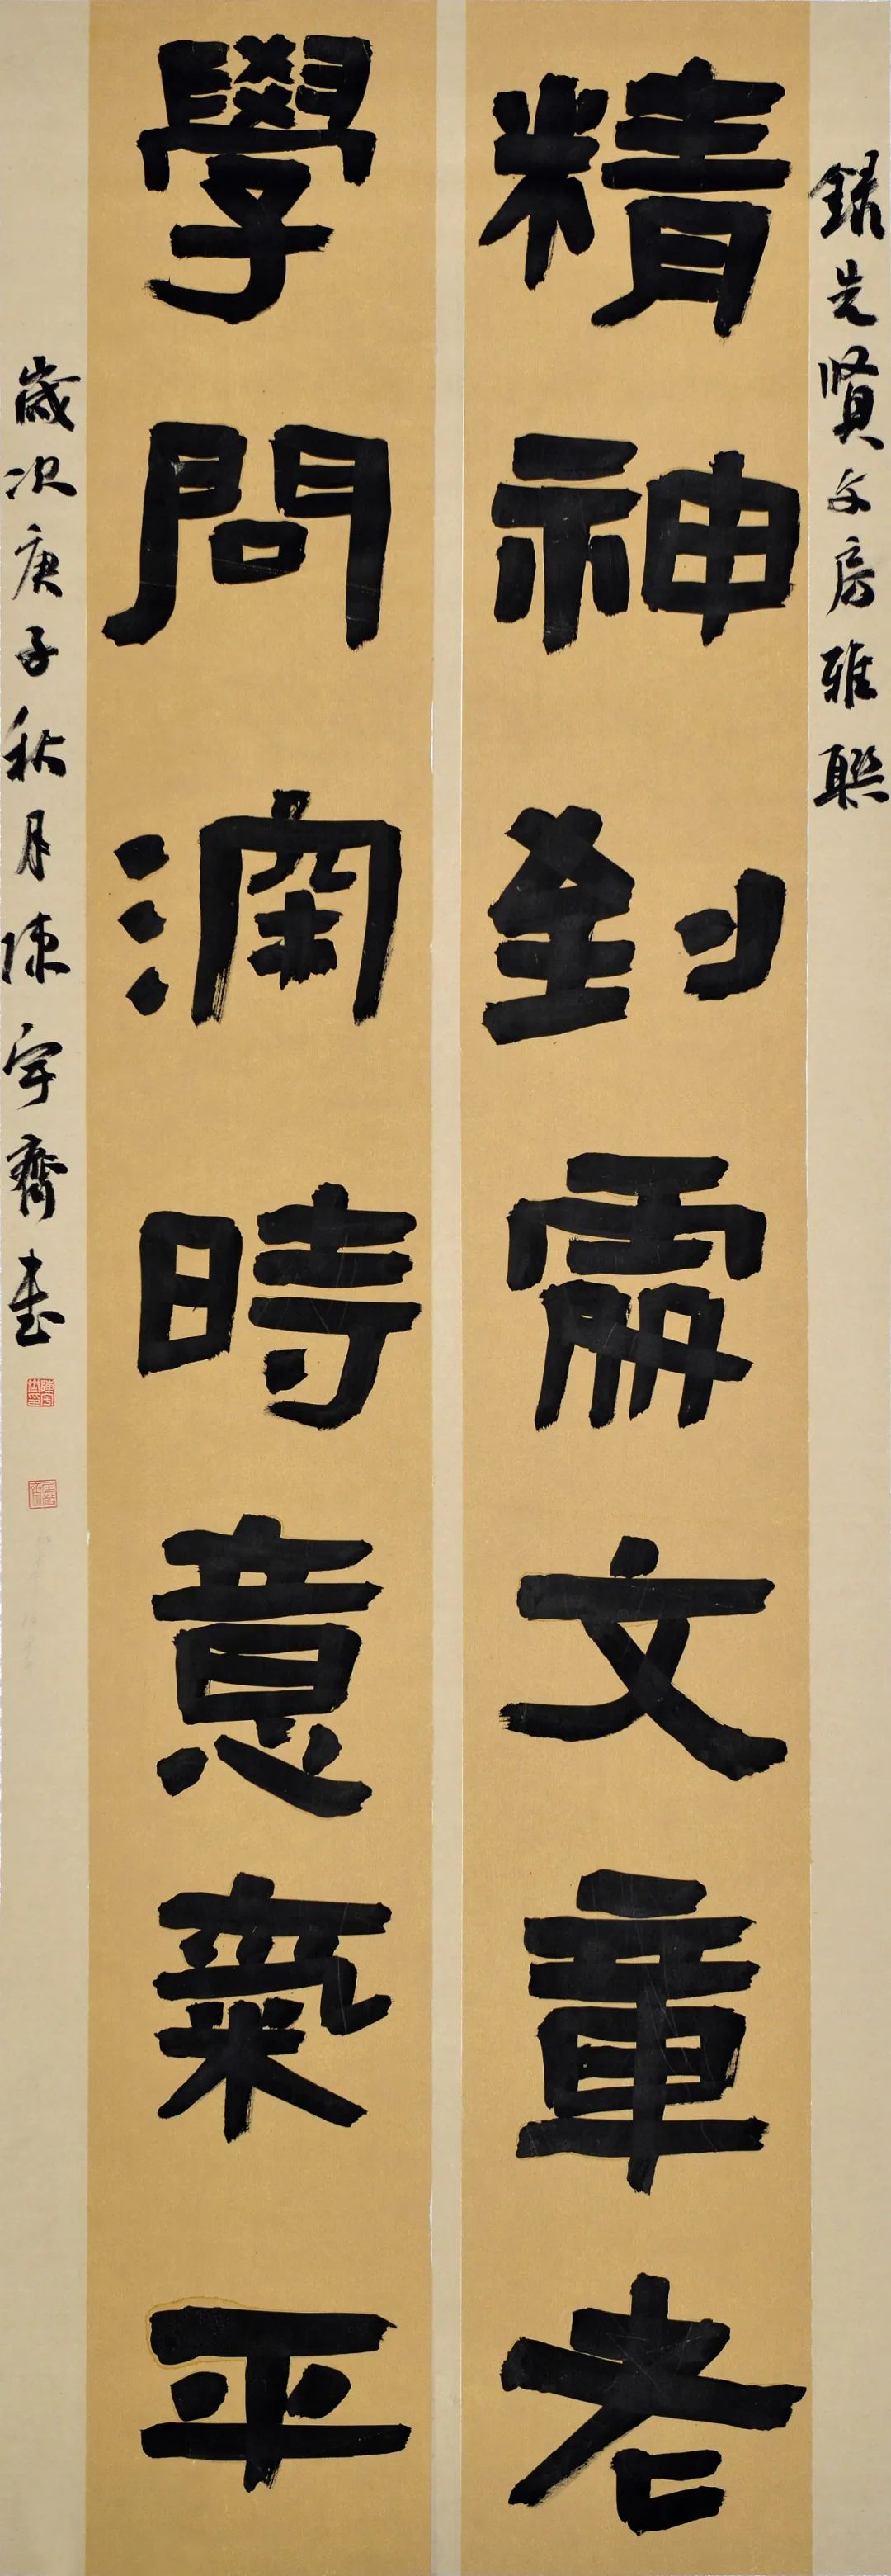 録先賢文房雅聯
精神到處文章老
學問深時意氣平
歲次庚子秋月陳宇齊書